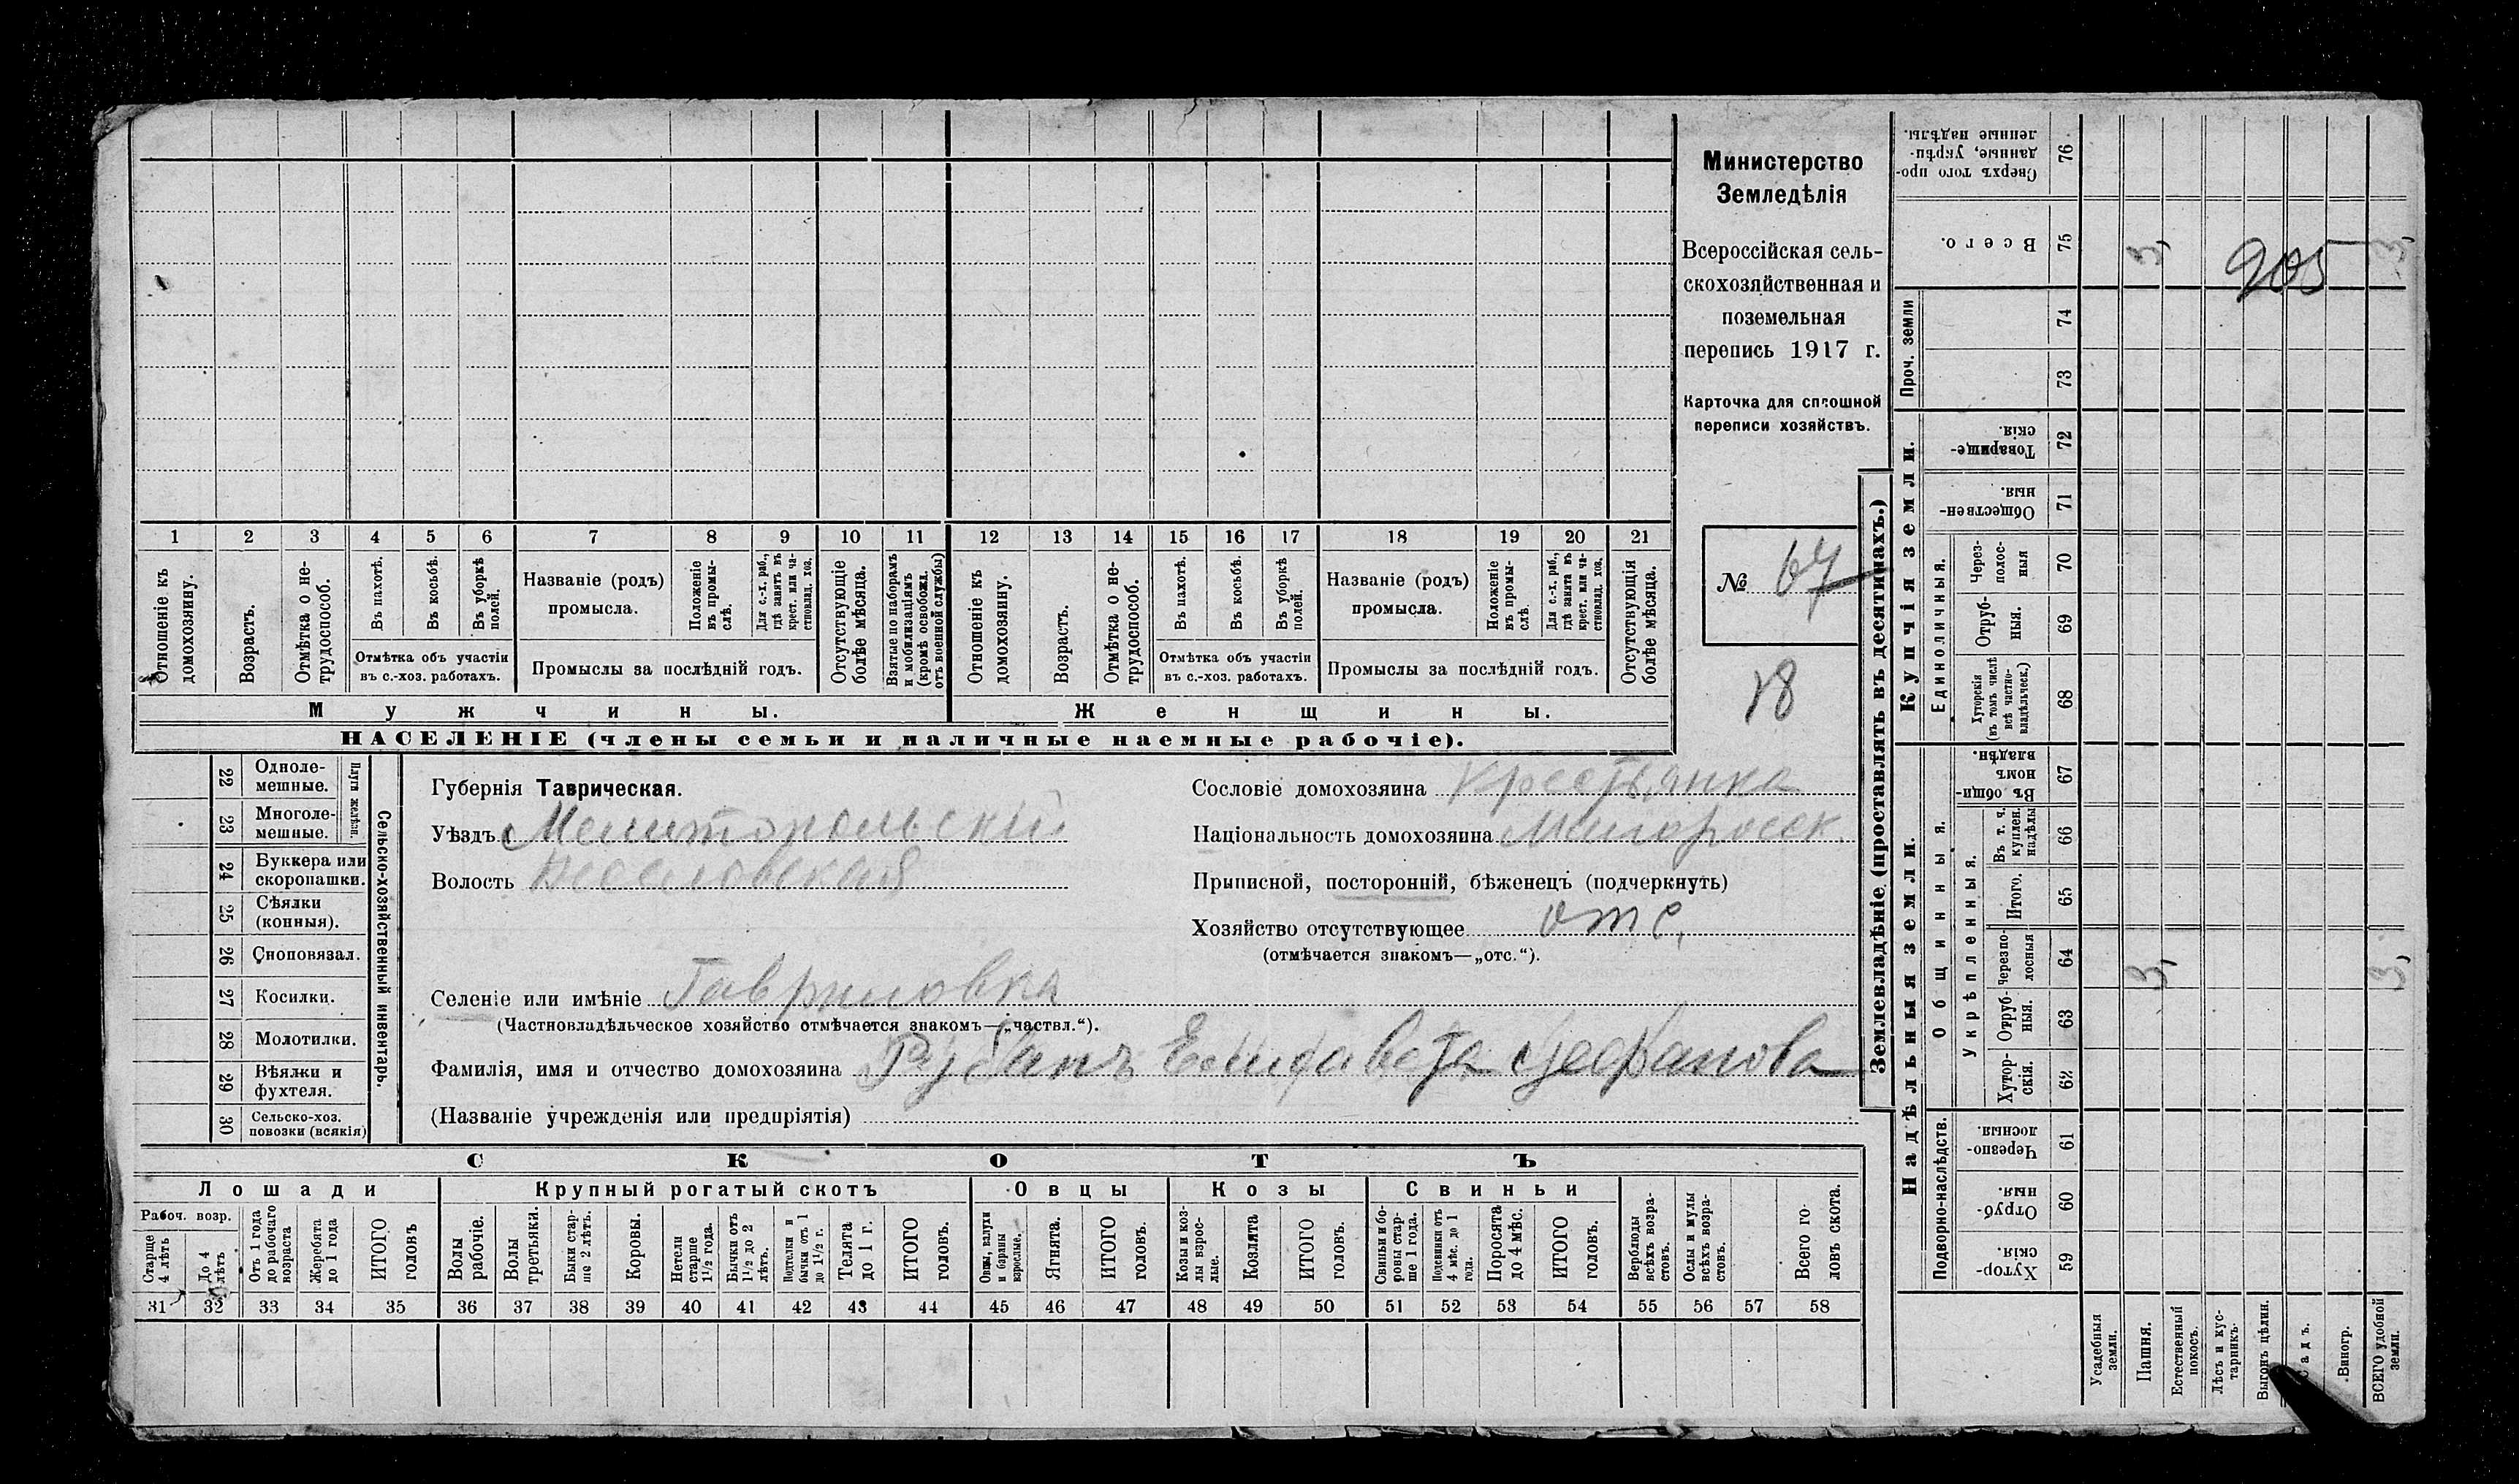 Министерство
Земледѣлія
Всероссійская сель-
скохозяйственная и
поземельная
перепись 1917 г.
Карточка для сплошной
переписи хозяйствъ.
№ 67
18
1 2 3 4 5 6 7 8 9 10 11 12 13 14 15 16 17 18 19 20 21
Отношеніе къ домохозяину.
Возрастъ.
Отмѣтка о не-трудоспособ.
Въ пахотѣ.
Въ косьбѣ.
Въ уборкѣ полей.
Отмѣтка объ участіи
въ с.-хоз. работахъ.
Названіе (родъ)
промысла.
Положеніе въ промы-слѣ.
Для с.-х. раб., гдѣ занятъ въ крест. или ча-стновлад. хоз.
Промыслы за послѣдній годъ.
Отсутствующіе болѣе мѣсяца.
Взятые по наборамъ и мобилизаціямъ (кромѣ освобожд. отъ военной службы)
Отношеніе къ домохозяину.
Возрастъ.
Отмѣтка о не-трудоспособ.
Въ пахотѣ.
Въ косьбѣ.
Въ уборкѣ полей.
Отмѣтка объ участіи
въ с.-хоз. работахъ.
Названіе (родъ)
промысла.
Положеніе въ промы-слѣ.
Для с.-х. раб., гдѣ занята въ крест. или ча-стновлад. хоз.
Промыслы за послѣдній годъ.
Отсутствующія болѣе мѣсяца.
Мужчины. Женщины.
НАСЕЛЕНІЕ (члены семьи и наличные наемные рабочіе).
22 Одноле-мешные.
23 Многоле-мешные.
Плуги желѣзн.
24 Буккера или скоропашки.
25 Сѣялки (конныя).
26 Сноповязал.
27 Косилки.
28 Молотилки.
29 Вѣялки и фухтеля.
30 Сельско-хоз. повозки (всякія)
Сельско-хозяйственный инвентарь.
Губернія Таврическая.
Уѣздъ Мелитопольскій
Волость Веселовская
Сословіе домохозяина Крестьянка
Національность домохозяина Малоросск.
Приписной, посторонній, бѣженецъ (подчеркнуть)
Хозяйство отсутствующее отс.
(отмѣчается знакомъ—„отс.“).
Селеніе или имѣніе Гавриловка
(Частновладѣльческое хозяйство отмѣчается знакомъ—„частвл.“).
Фамилія, имя и отчество домохозяина Рубанъ Елизавета Стефанова
(Названіе учрежденія или предпріятія)
СКОТЪ
Лошади Крупный рогатый скотъ Овцы Козы Свиньи
Рабоч. возр.
Старше 4 лѣтъ
До 4 лѣтъ
Отъ 1 года до рабочаго возраста
Жеребята до 1 года
ИТОГО головъ
Волы рабочіе.
Волы третьяки.
Быки стар-ше 2 лѣтъ.
Коровы.
Нетели старше 1½ года.
Бычки отъ 1½ до 2 лѣтъ.
Подтелки и бычки отъ 1 до 1½ г.
Телята до 1 г.
ИТОГО головъ.
Овцы, валухи и бараны взрослые.
Ягнята.
ИТОГО головъ.
Козы и коз-лы взрос-лые.
Козлята
ИТОГО головъ.
Свиньи и бо-ровы стар-ше 1 года.
Подсвинки отъ 4 мѣс. до 1 года.
Поросята до 4 мѣс.
ИТОГО головъ.
Верблюды всѣхъ возра-стовъ.
Ослы и мулы всѣхъ возра-стовъ.
Всего го-ловъ скота.
31 32 33 34 35 36 37 38 39 40 41 42 43 44 45 46 47 48 49 50 51 52 53 54 55 56 57 58
Землевладѣніе (проставлять въ десятинахъ.)
Сверхъ того про-данные, укрѣп-ленные надѣлы. 76
Всего. 75 3, 905 3,
Проч. земли 74
73
Купчія земли.
Товарище-скія. 72
Обществен-ныя. 71
Единоличныя.
Через-полос-ныя 70
Отруб-ныя. 69
Хуторскія (въ томъ числѣ всѣ частно-владѣльческ.) 68
Надѣльныя земли.
Общинныя.
Въ общи-номъ владѣн. 67
Укрѣпленныя.
Въ т. ч. куплен. надѣлы 66
Итого. 65
Черезпо-лосныя 64 3, 3,
Отруб-ныя. 63
Хутор-скія. 62
Подворно-наслѣдств.
Черезпо-лосныя. 61
Отруб-ныя. 60
Хутор-скія. 59
Усадебныя земли.
Пашня.
Естественный покосъ.
Лѣсъ и кус-тарникъ.
Выгонъ цѣлин.
Садъ.
Виногр.
ВСЕГО удобной земли.